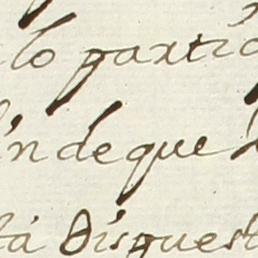 lo partic
in de que
ta Disquest